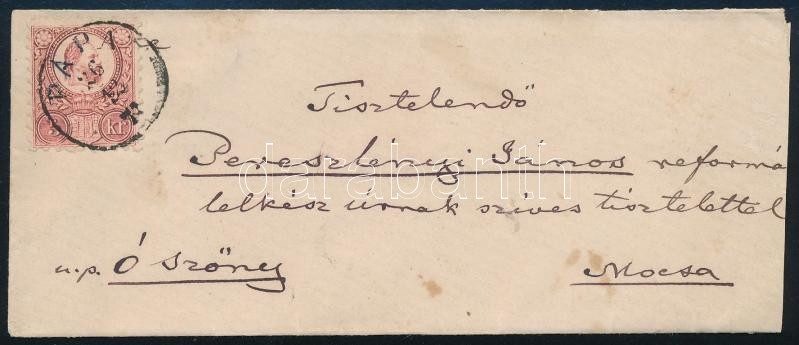 PÁPA
26
12
5 KR
Tisztelendő
Peresztényi János reformá
lelkész úrnak szíves tisztelettel
u.p. Ó Szőny
Mocsa
darabanth